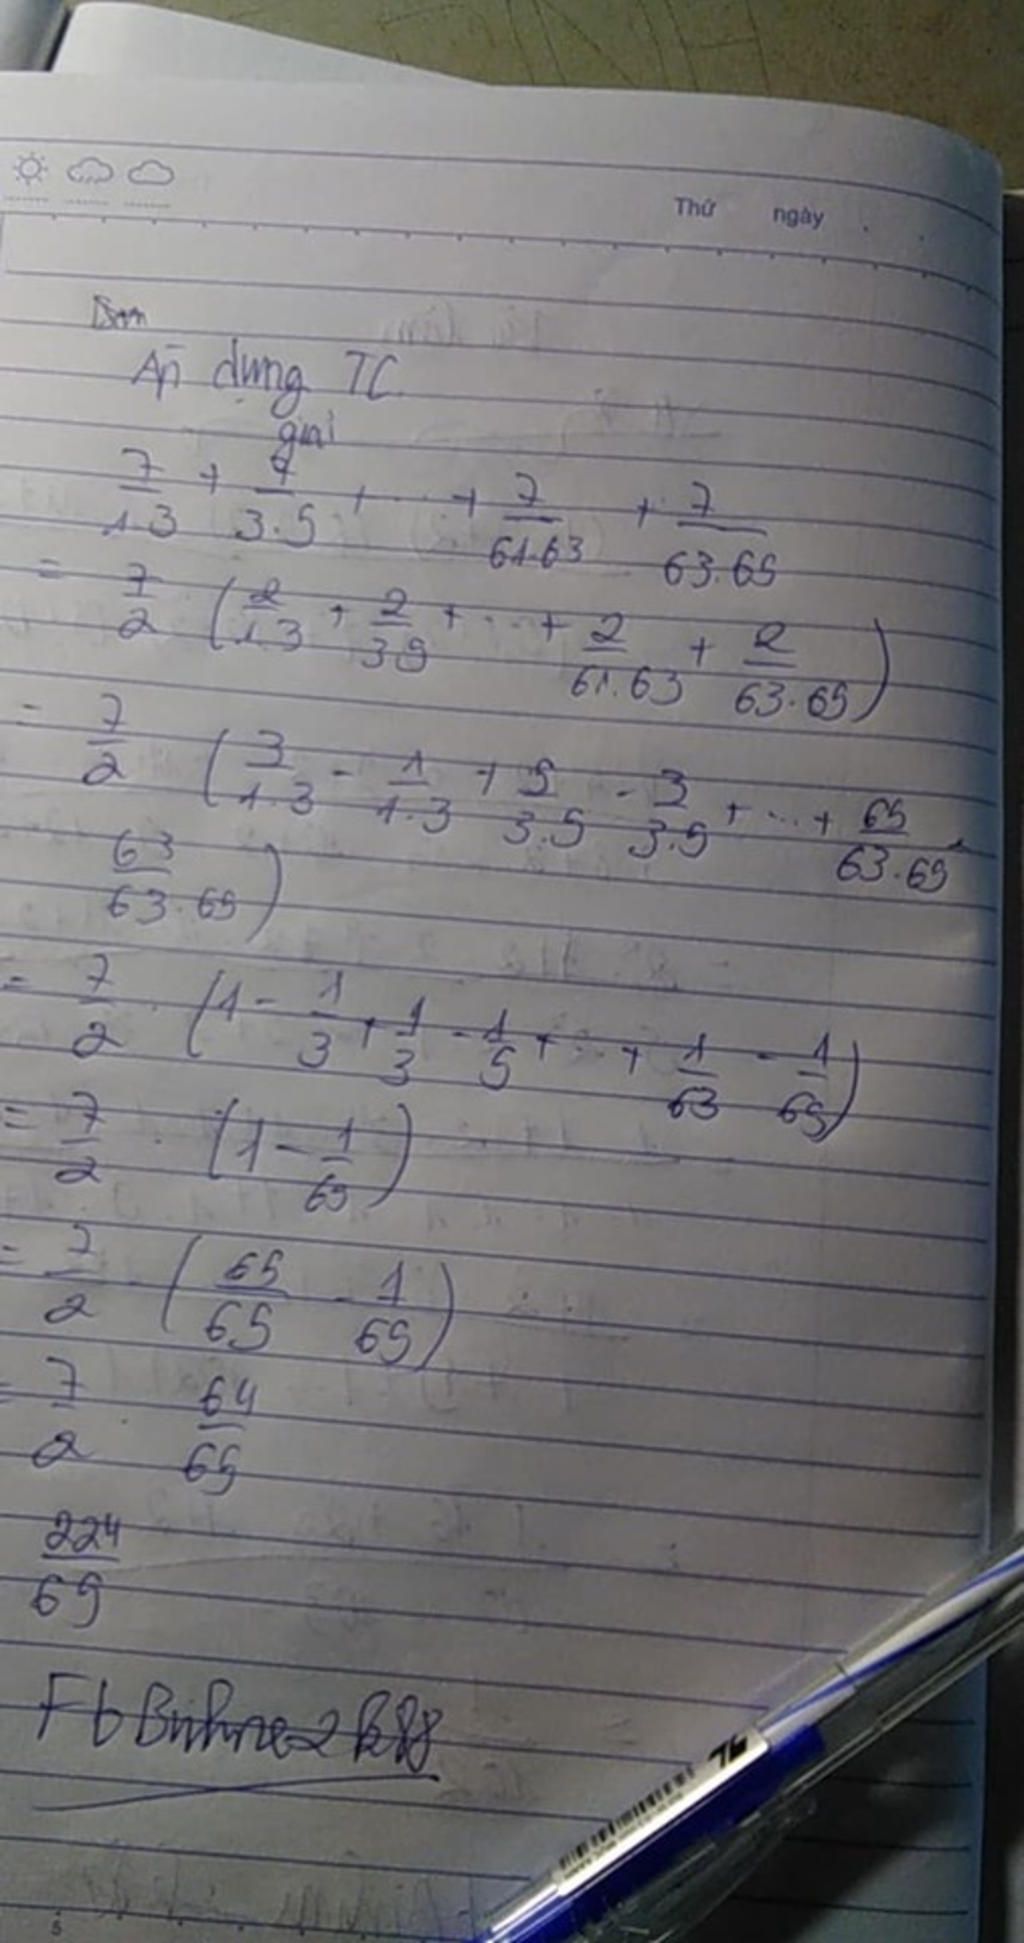 Thứ ngày
Áp dụng TC
giải
7/1.3 + 7/3.5 + ... + 7/61.63 + 7/63.65
= 7/2 . (2/1.3 + 2/3.5 + ... + 2/61.63 + 2/63.65)
= 7/2 (3/1.3 - 1/1.3 + 5/3.5 - 3/3.5 + ... + 65/63.65 -
63/63.65)
= 7/2 . (1 - 1/3 + 1/3 - 1/5 + ... + 1/63 - 1/65)
= 7/2 . (1 - 1/65)
= 7/2 . (65/65 - 1/65)
= 7/2 . 64/65
224/65
Fb